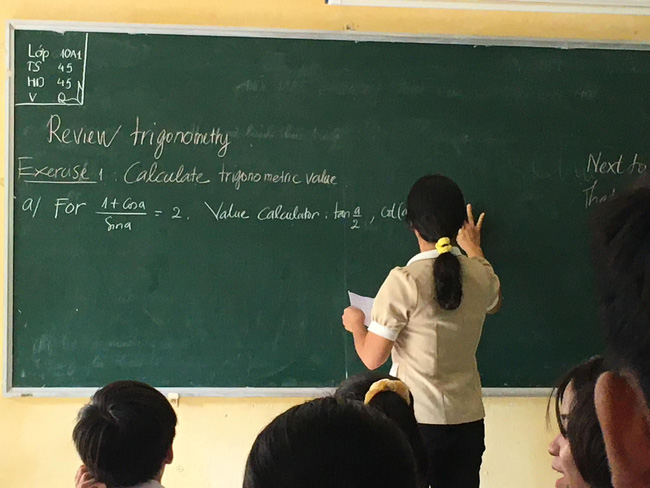 Lớp 10A1
TS 45
HD 45
V 0
Review trigonomethy
Exercise 1 : Calculate trigonometric value
a/ For (1 + cosa)/(sina) = 2. Value calculator. tan a/2, cot(a
Next to